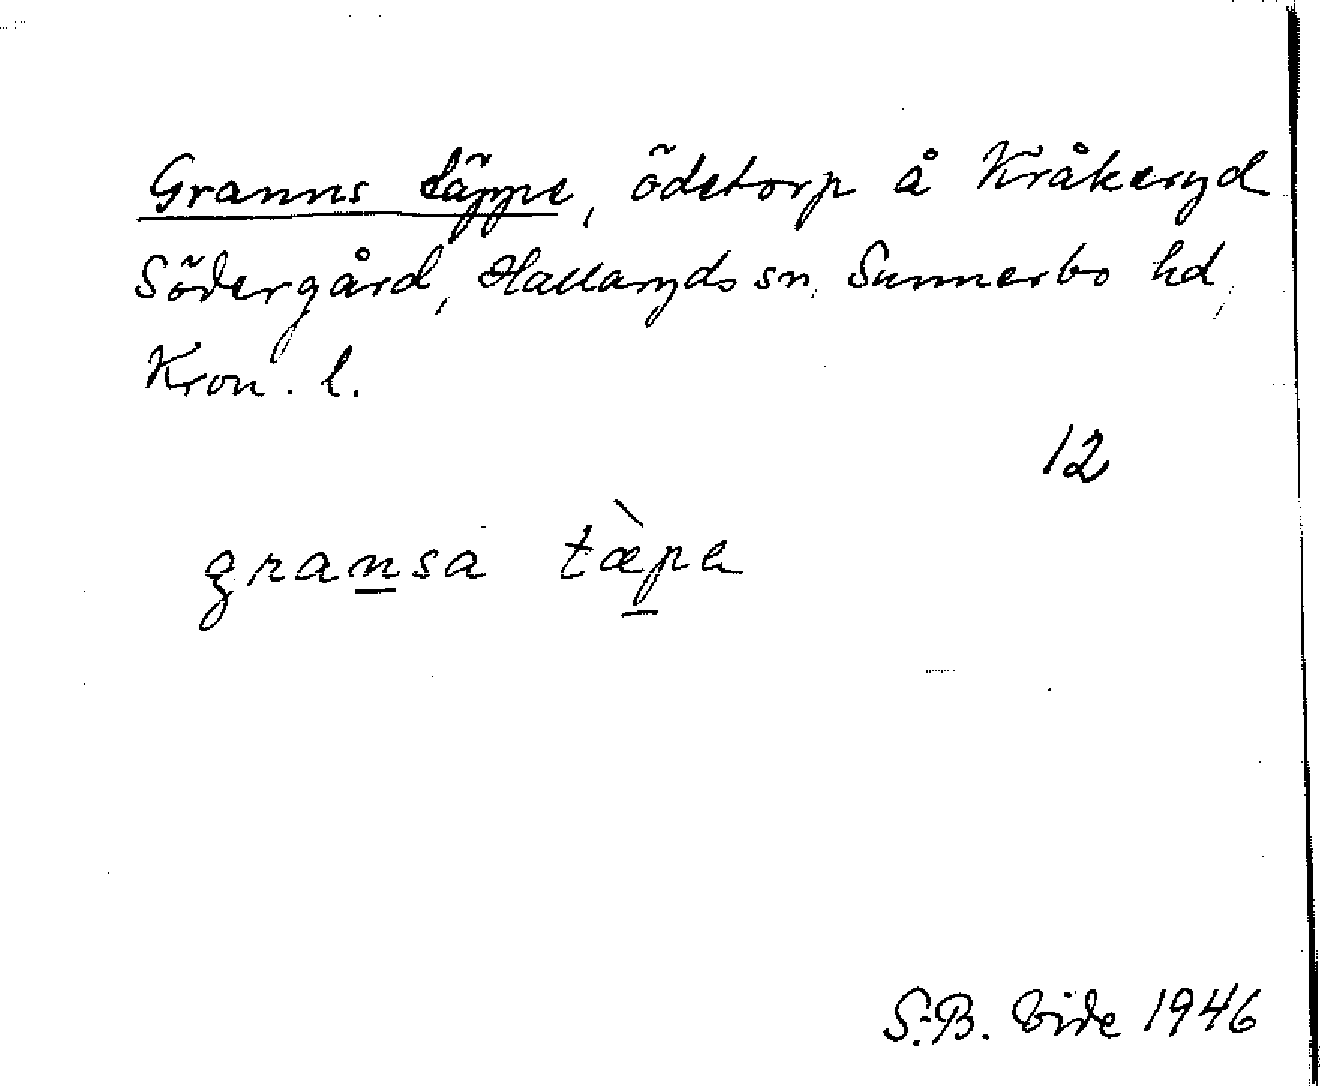 Granns täppe, ödetorp å Kråkeryd
Södergård, Hallaryds sn, Sunnerbo hd,
Kron. l.
12
gransa tæ̀pa
S.-B. Vide 1946